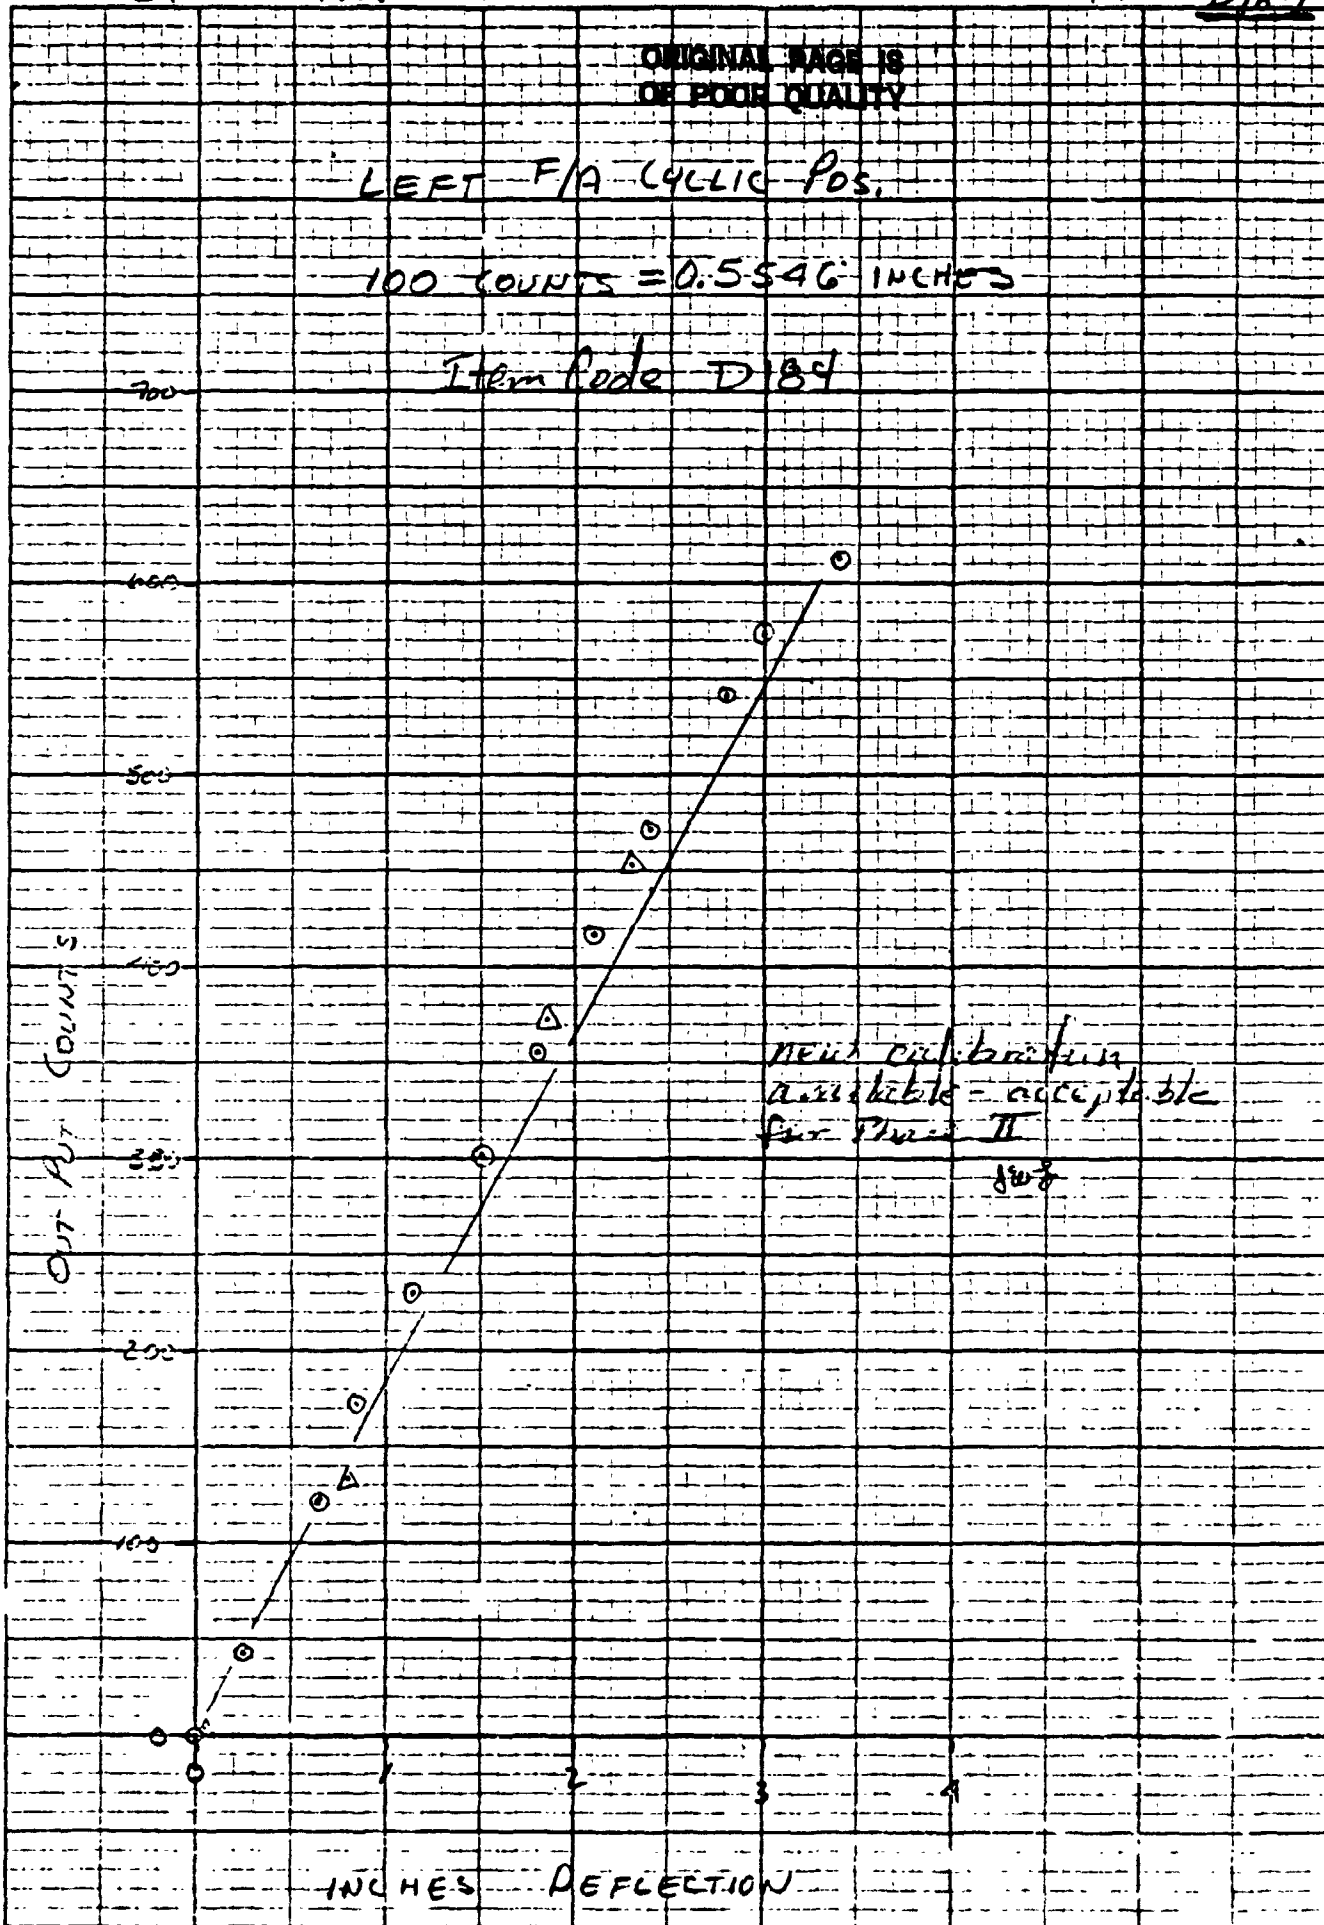 ORIGINAL PAGE IS
OF POOR QUALITY
LEFT F/A CYCLIC POS.
100 COUNTS = 0.5546 INCHES
Item Code D184
700
600
500
400
300
200
100
0
OUT PUT COUNTS
new calibration
available - acceptable
for Phase II
0 1 2 3 4
INCHES DEFLECTION